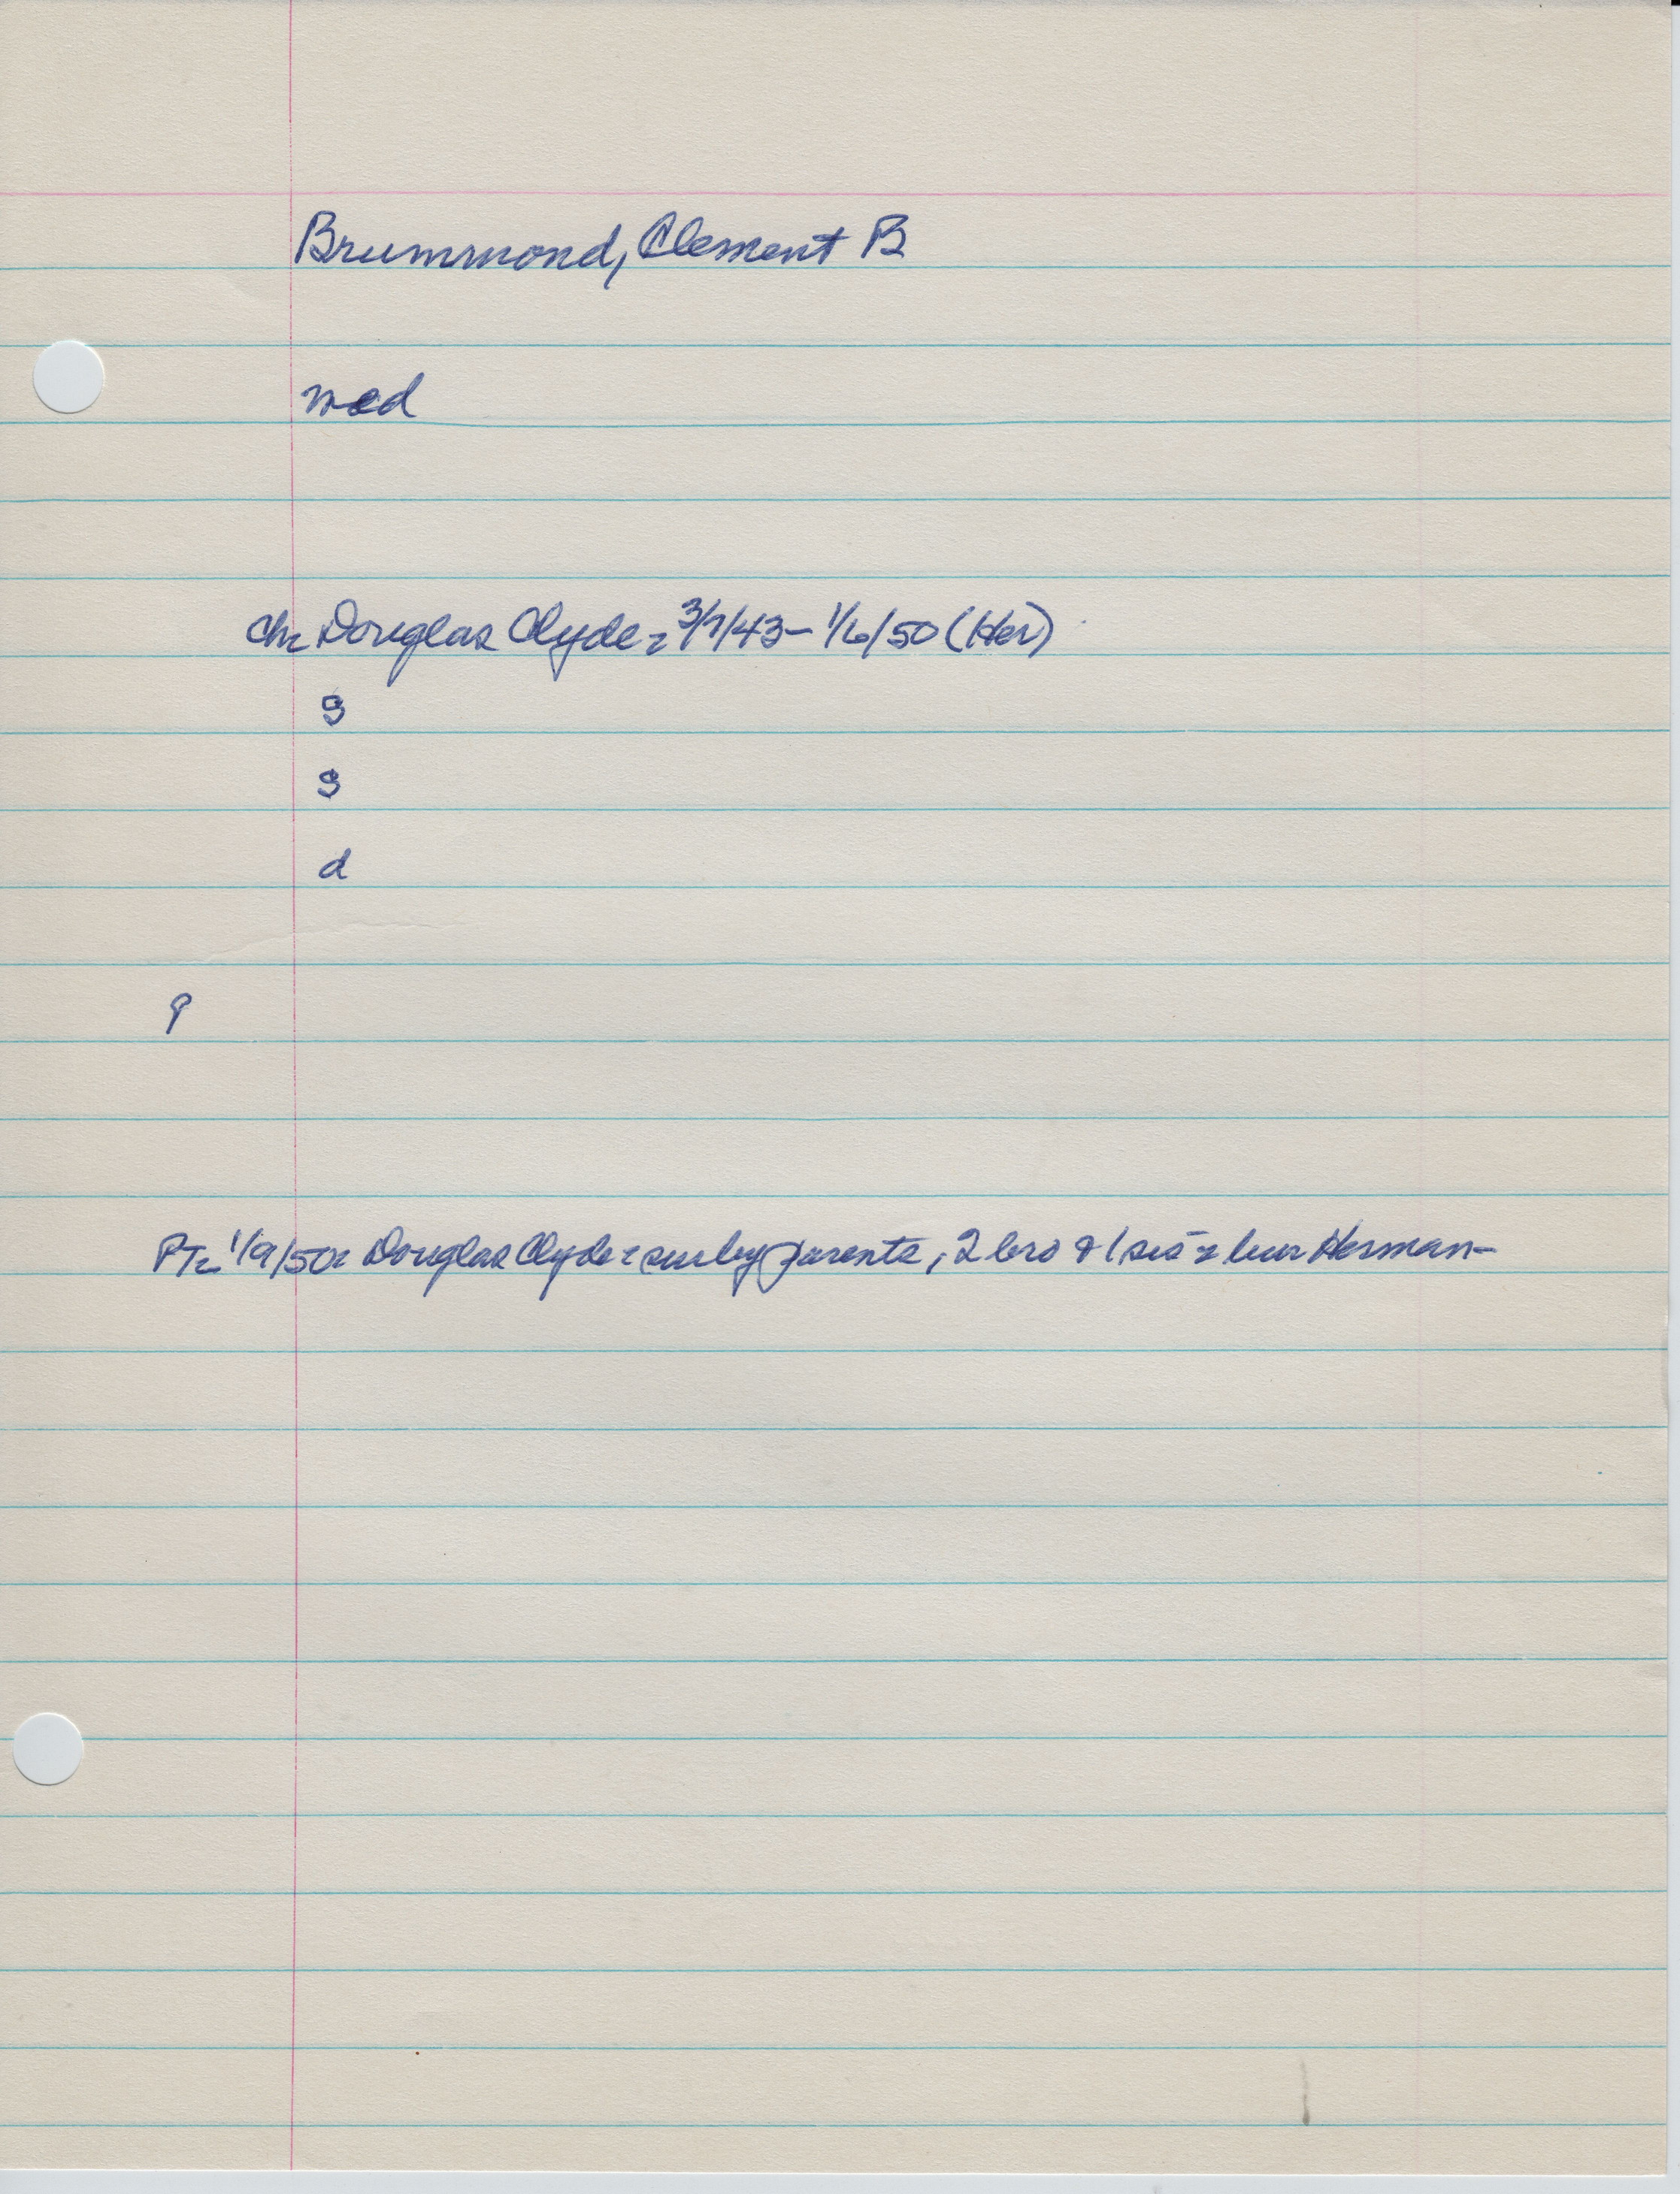 Brummond, Clement B
med
Ch- Douglas Clyde - 3/7/43 - 1/6/50 (Her)
s
s
d
P
PT- 1/9/50- Douglas Clyde - sur by parents, 2 bro & 1 sis - bur Herman-